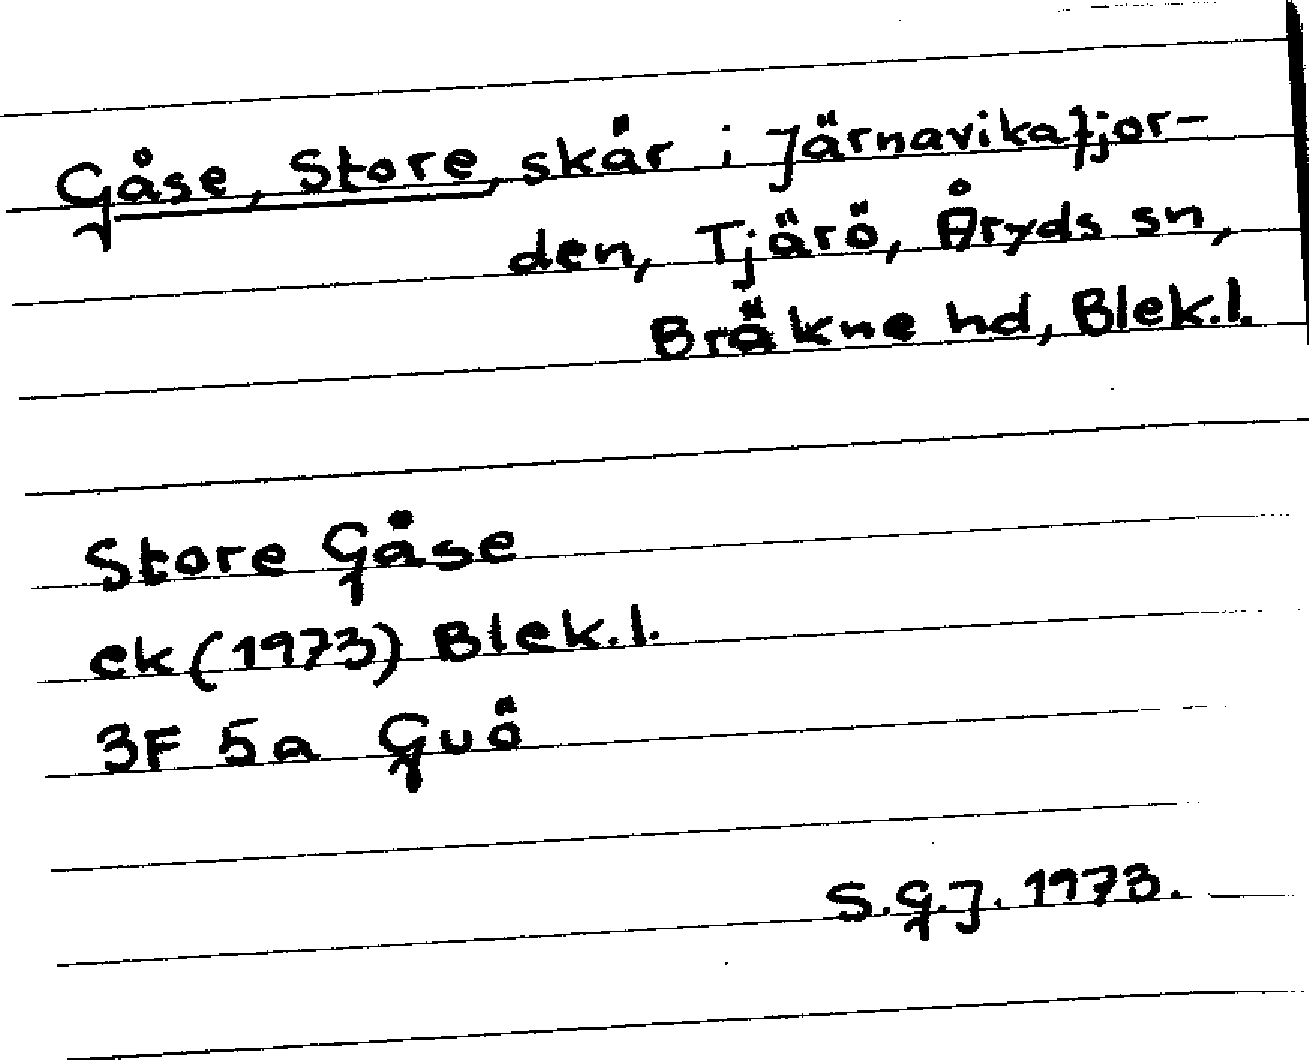 Gåse, Store, skär i Järnavikafjor-
den, Tjärö, Åryds sn,
Bräkne hd, Blek.l.
Store Gåse
ek (1973) Blek.l.
3F 5a Guö
S.G.J. 1973.